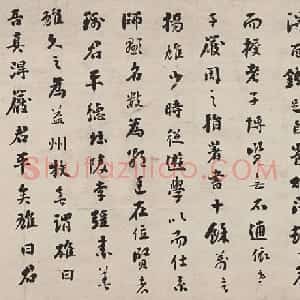 而授老子博覽亡不通依老
子嚴周之指著書十餘萬言
揚雄少時從遊學以而仕京
師顯名數為朝廷在位賢者
稱君平德杜陵李彊素善
雄久之為益州牧喜謂雄曰
吾真得嚴君平矣雄曰君